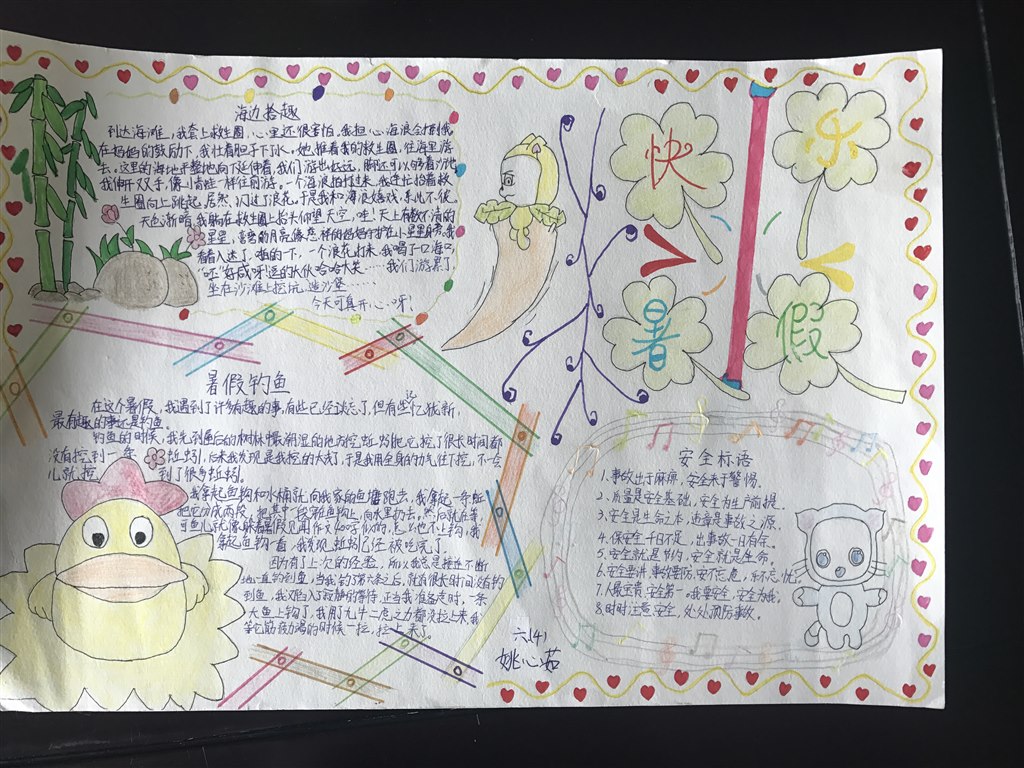 海边拾趣
到达海滩，我套上救生圈，心里还很害怕，我担心海浪会打倒我。
在妈妈的鼓励下，我壮着胆子下水，她推着我的救生圈，往海里游
去，这里的海地平整地向下延伸着，我们游出好远，脚还可以够着沙地
我伸开双手，像小青蛙一样往前游。一个海浪拍打过来，我连忙抬着救
生圈向上跳起，居然，闪过了浪花。于是我和海浪嬉戏，乐此不彼。
天色渐暗，我躺在救生圈上抬头仰望天空，哇！天上有数不清的
星星，弯弯的月亮像
看入迷了，啪的一下，一个浪花打来，我喝了一口海水，
“呸”好咸呀！逗的大伙哈哈大笑……我们游累了，
坐在沙滩上挖坑，造沙堡……
今天可真开心呀！
快
乐
暑
假
暑假钓鱼
在这个暑假，我遇到了许多有趣的事，有些已经淡忘了，但有些记忆犹新，
最有趣的事还是钓鱼。
钓鱼的时候，我先到屋后的树林中最阴湿的地方挖蚯蚓吧，挖了很长时间都
没有挖到一条蚯蚓，后来我发现是我挖的太浅了，于是我用全身的力气往下挖，不一会
儿就挖到了很多蚯蚓。
我拿起鱼钩和水桶就向我家的鱼塘跑去，我拿起一条蚯
把它分成两段，把其中一段
拿起鱼钩一看，我发现蚯蚓已经被吃完了。
因为有了上次的经验，所以我总是接连不断
地 钓到鱼，当我钓了第六条之后，就有很长时间没有钓
到鱼，我又陷入了寂静的等待，正当我准备走时，一条
大鱼上钩了，我用了九牛二虎之力都没拉上来，我
等它筋疲力竭的时候一拉，拉上来了。
六(4)
姚心茹
安全标语
1、事故出于麻痹，安全来于警惕。
2、质量是安全基础，安全为生产前提。
3、安全是生命之本，违章是事故之源。
4、保安全千日不足，出事故一日有余。
5、安全就是节约，安全就是生命。
6、安全要讲，事故要防，安不忘危，乐不忘忧。
7、人最宝贵，安全第一，我要安全，安全为我。
8、时时注意安全，处处预防事故。